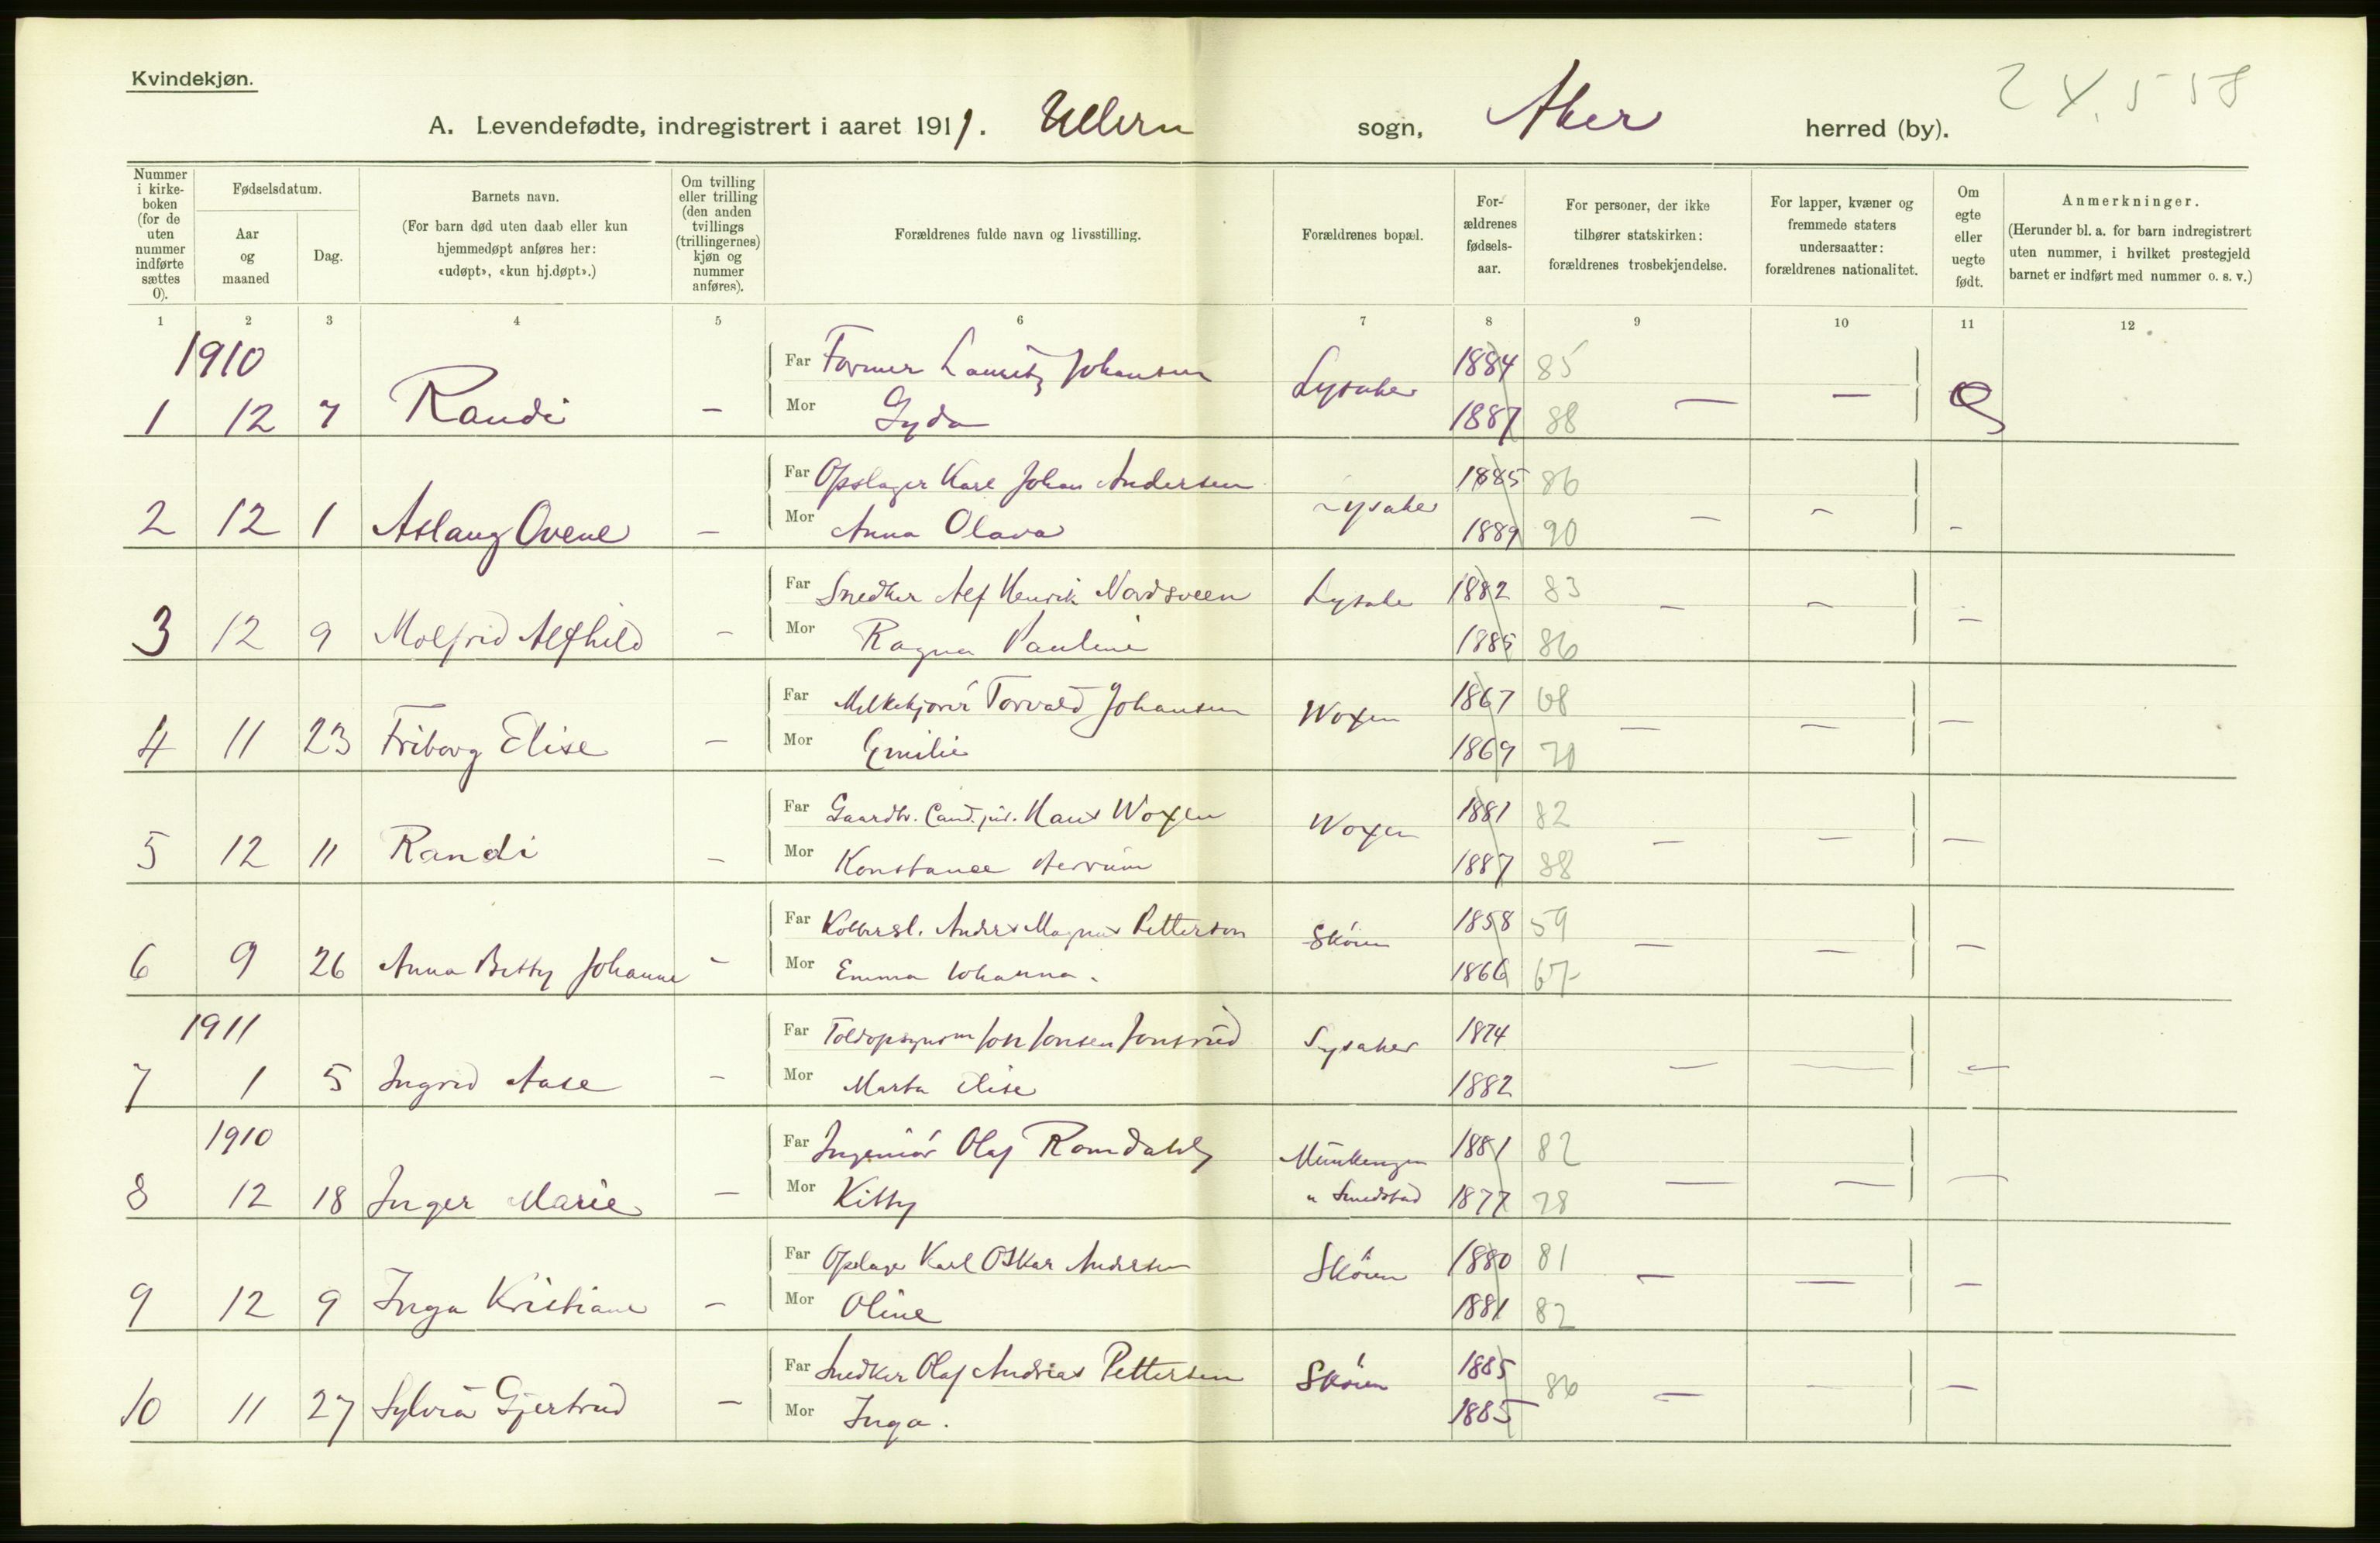 Kvindekjøn.
24.558
A. Levendefødte, indregistrert i aaret 1911. Ullern sogn, Aker herred (by).
Nummer i kirke-boken (for de uten nummer indførte sættes 0).
Fødselsdatum.
Aar og maaned
Dag.
Barnets navn.
(For barn død uten daab eller kun hjemmedøpt anføres her: «udøpt», «kun hj.døpt».)
Om tvilling eller trilling (den anden tvillings (trillingernes) kjøn og nummer anføres).
Forældrenes fulde navn og livsstilling.
Forældrenes bopæl.
For-ældrenes fødsels-aar.
For personer, der ikke tilhører statskirken: forældrenes trosbekjendelse.
For lapper, kvæner og fremmede staters undersaatter: forældrenes nationalitet.
Om egte eller uegte født.
Anmerkninger.
(Herunder bl. a. for barn indregistrert uten nummer, i hvilket prestegjeld barnet er indført med nummer o. s. v.)
1 2 3 4 5 6 7 8 9 10 11 12
1910
Far Former Lauritz Johansen Lysaker 1884 85
1 12 7 Randi – Mor Gyda 1887 88 – –
Far Opslager Karl Johan Andersen Lysaker 1885 86
2 12 1 Aslaug Ovene – Mor Anna Olava 1889 90 – – –
Far Snedker Alf Henrik Nordsveen Lysake 1882 83
3 12 9 Molfrid Alfhild – Mor Ragna Pauline 1885 86 – – –
Far Melkekjører Torvald Johansen Woxen 1867 68
4 11 23 Friborg Elise – Mor Emilie 1869 70 – – –
Far Gaardbr. Cand. jur. Hans Woxen Woxen 1881 82
5 12 11 Randi – Mor Konstance 1887 88 – – –
Far Anders Magnus Petterson Skøien 1858 59
6 9 26 Anna Betty Johanne – Mor Emma Johanna. 1866 67 – – –
1911
Far Toldopsynsm Jon Jonsen Jonsrud Lysaker 1874
7 1 5 Ingrid Aase – Mor Marta Elise 1882 – – –
1910
Far Ingeniør Olaf Romdahl Munkengen 1881 82
8 12 18 Inger Marie – Mor Kitty u Smedstad 1877 78 – – –
Far Opslager Karl Oskar Andersen Skøien 1880 81
9 12 9 Inga Kristiane – Mor Oline 1881 82 – – –
Far Snedker Olaf Andreas Pettersen Skøien 1885
10 11 27 Sylvia Gjertrud – Mor Inga. 1885 86 – – –